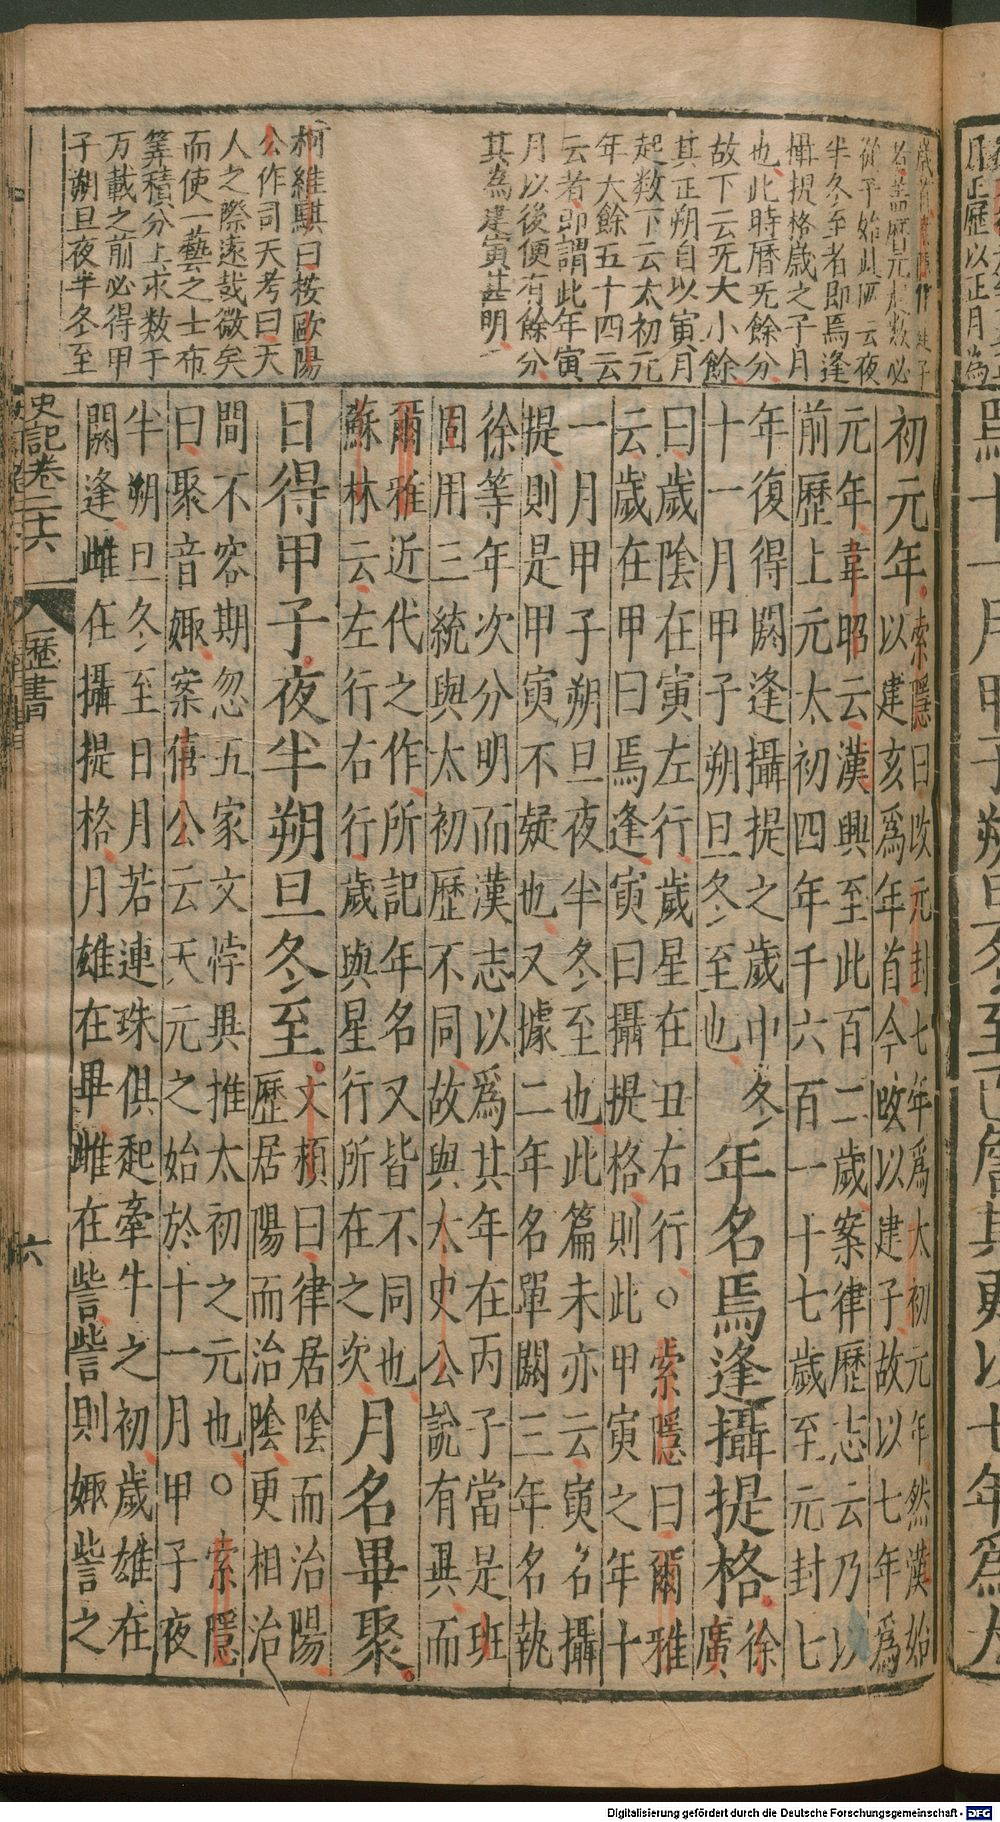 名蓋曆元起數必
從平始此所云夜
半冬至者即焉逢
攝提格歲之子月
也此時曆旡餘分
故下云旡大小餘
其正朔自以寅月
起数下云太初元
年大餘五十四云
云者即謂此年寅
月以後便有餘分
其為建寅甚明
柯維騏曰桉歐陽
公作司天考曰天
人之際遠哉微矣
而使一藝之士布
筭積分上求数于
万載之前必得甲
子朔旦夜半冬至
初元年。索隱曰改元封七年爲太初元年然漢始
以建亥爲年首今改以建子故以七年爲
元年韋昭云漢興至此百二歲案律歷志云乃以
前歷上元太初四年千六百一十七歲至元封七
年復得閼逢攝提之歲中冬
十一月甲子朔旦冬至也
年名焉逢攝提格。徐
廣
曰歲陰在寅左行歲星在丑右行○索隱曰爾雅
云歲在甲曰焉逢寅曰攝提格則此甲寅之年十
一月甲子朔旦夜半冬至也此篇未亦云寅名攝
提則是甲寅不疑也又據二年名單閼三年名執
徐等年次分明而漢志以爲其年在丙子當是班
固用三統與太初歷不同故與太史公說有異而
爾雅近代之作所記年名又皆不同也
蘇林云左行右行歲與星行所在之次
月名畢聚。
日得甲子夜半朔旦冬至。文穎曰律居陰而治陽
歷居陽而治陰更相治
間不容期忽五家文悖異推太初之元也○索隱
曰聚音娵案僖公云天元之始於十一月甲子夜
半朔旦冬至日月若連珠俱起牽牛之初歲雄在
閼逢雌在攝提格月雄在畢雌在訾訾則娵訾之
史記卷二十六
歷書
六
Digitalisierung gefördert durch die Deutsche Forschungsgemeinschaft - DFG